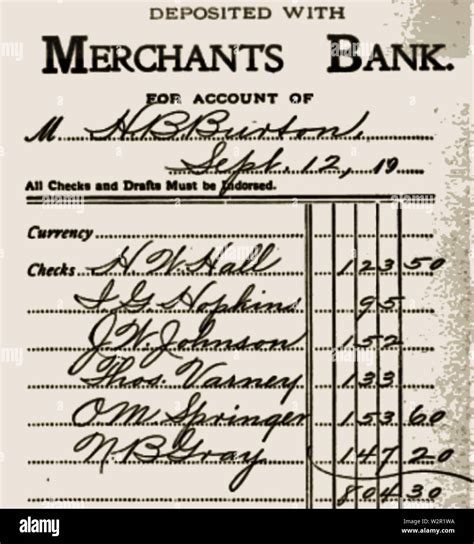 DEPOSITED WITH
MERCHANTS BANK.
FOR ACCOUNT OF
M H B Burton.
Sept. 12, 19
All Checks and Drafts Must be Indorsed.
Currency
Checks H. W. Hall 123 50
I G Hopkins 95
J. W. Johnson 152
Thos. Varney 133
O M Springer 153 60
N B Gray 147 20
804 30
alamy
Image ID: W2R1WA
www.alamy.com